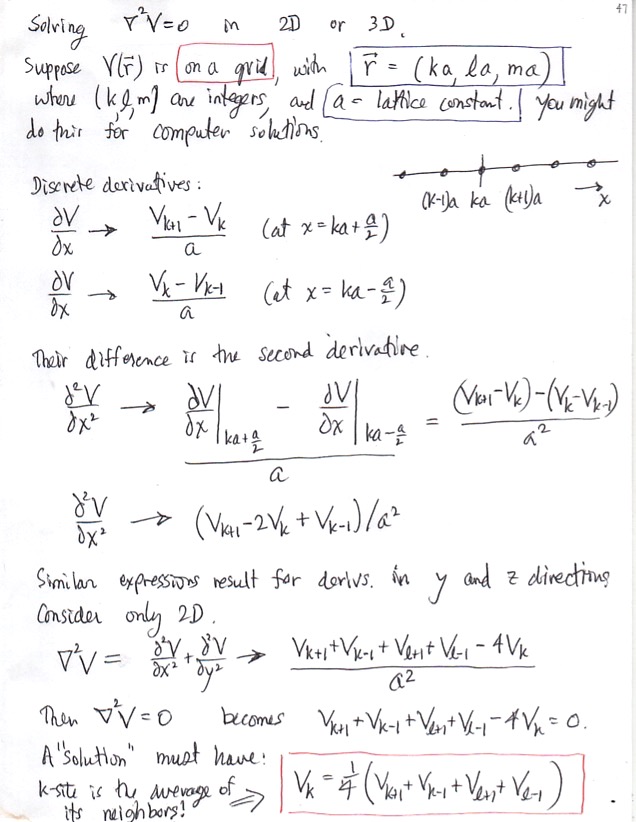 47
Solving ∇²V=0 in 2D or 3D.
Suppose V(r⃗) is on a grid, with r⃗ = (ka, la, ma)
where (k,l,m) are integers, and a = lattice constant. You might
do this for computer solutions.
(k-1)a ka (k+1)a → x
Discrete derivatives:
∂V/∂x → (V_{k+1} - V_k)/a (at x = ka + a/2)
∂V/∂x → (V_k - V_{k-1})/a (at x = ka - a/2)
Their difference is the second derivative.
∂²V/∂x² → (∂V/∂x|_{ka+a/2} - ∂V/∂x|_{ka-a/2})/a = ((V_{k+1}-V_k)-(V_k-V_{k-1}))/a²
∂²V/∂x² → (V_{k+1}-2V_k+V_{k-1})/a²
Similar expressions result for derivs. in y and z directions
Consider only 2D.
∇²V = ∂²V/∂x² + ∂²V/∂y² → (V_{k+1}+V_{k-1}+V_{l+1}+V_{l-1}-4V_k)/a²
Then ∇²V=0 becomes V_{k+1}+V_{k-1}+V_{l+1}+V_{l-1}-4V_k=0.
A "solution" must have:
k-site is the average of ⇒ V_k = 1/4 (V_{k+1}+V_{k-1}+V_{l+1}+V_{l-1})
its neighbors!